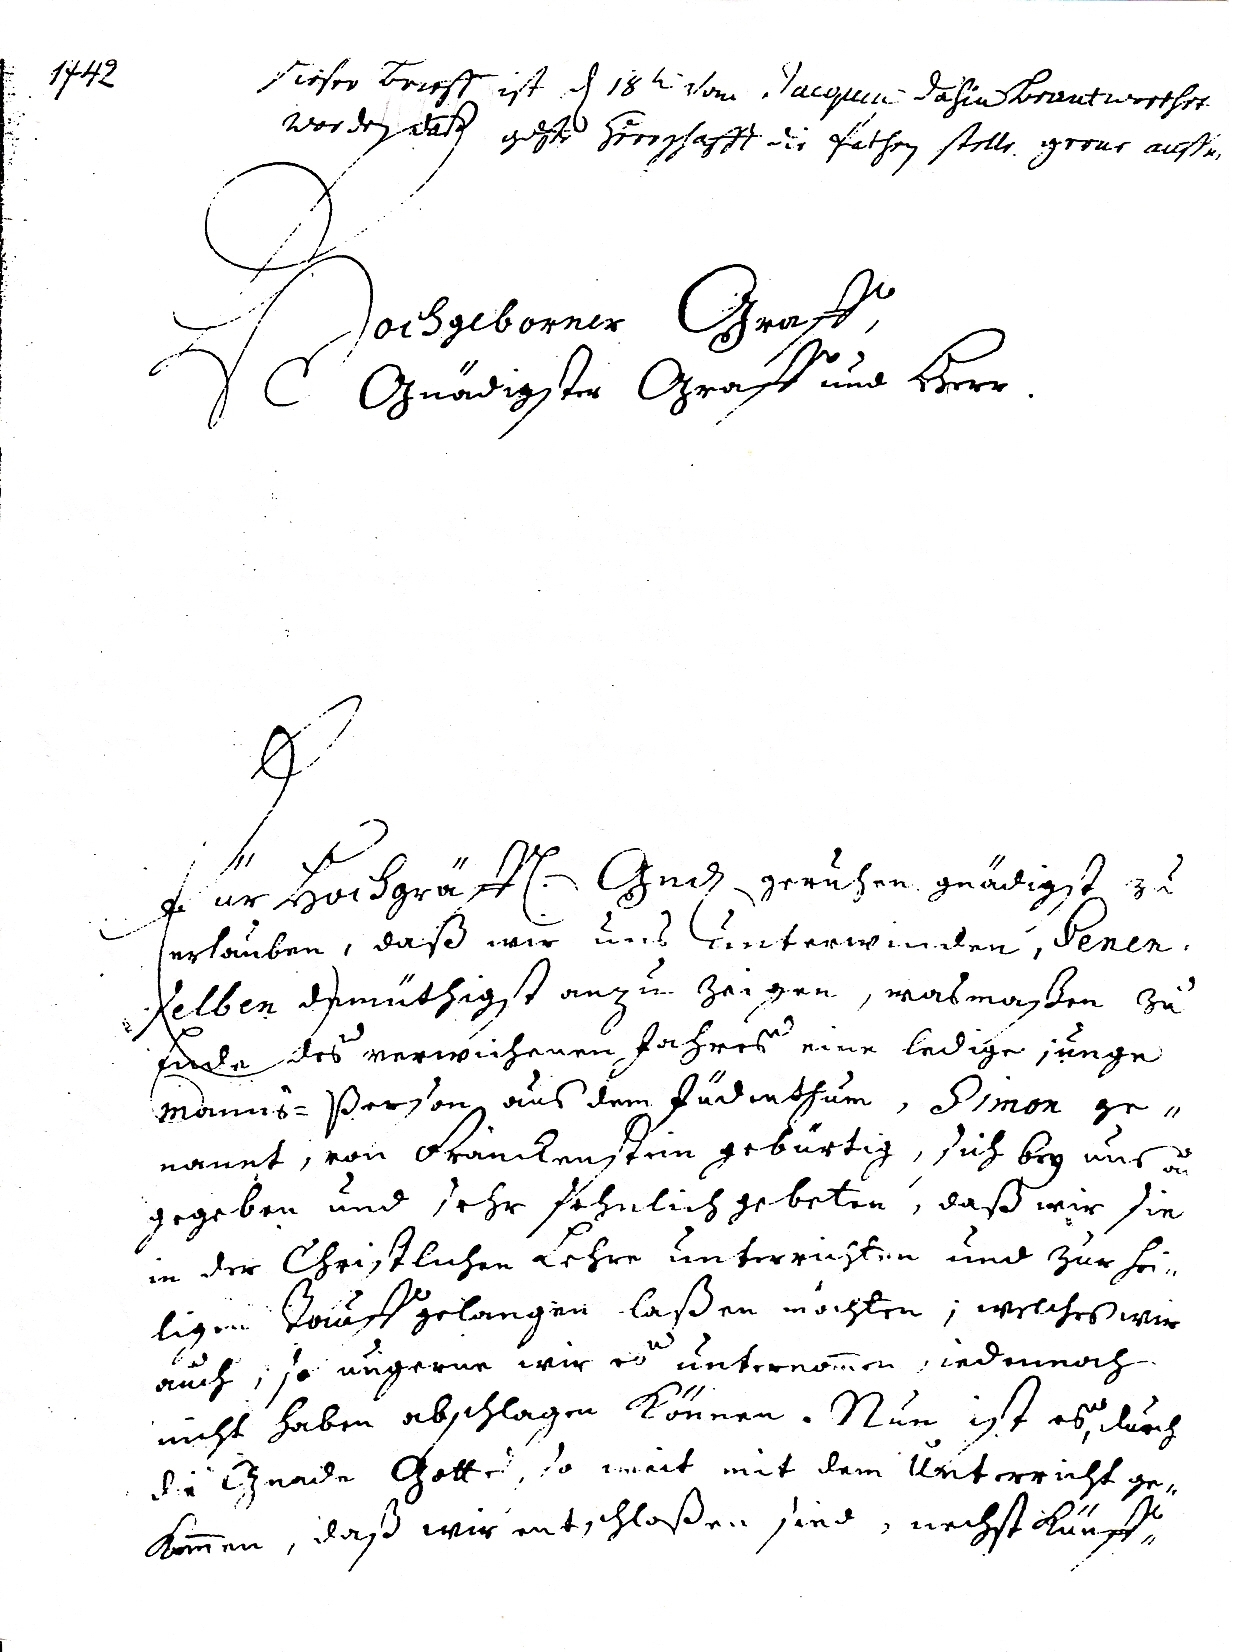 1742
Dieser Brieff ist d 18t von Jacquin dahin Beantworthet
worden daß gdste Herrschafft die Pathen stelle gerne auff
Hochgeborner Graff,
Gnädigster Graff und Herr.
Eür Hochgräffl. Gnd geruhen gnädigst zu
erlauben, daß wir uns unterwinden, Denen
selben demüthigst anzu zeigen, wasmaßen zu
Ende des verwichenen Jahres eine ledige junge
Manns-Person aus dem Judenthum, Simon ge"
nannt, von Franckenstein gebürtig, sich bey uns an
gegeben und sehr sehnlich gebeten, daß wir sie
in der Christlichen Lehre unterrichten und zur hei-
ligen Tauff gelangen laßen möchten; welches wir
auch, so ungerne wir es unternommen, iedennoch
nicht haben abschlagen können. Nun ist es, durch
die Gnade Gottes, so weit mit dem Unterricht ge-
kommen, daß wir entschloßen sind, nechst künff-